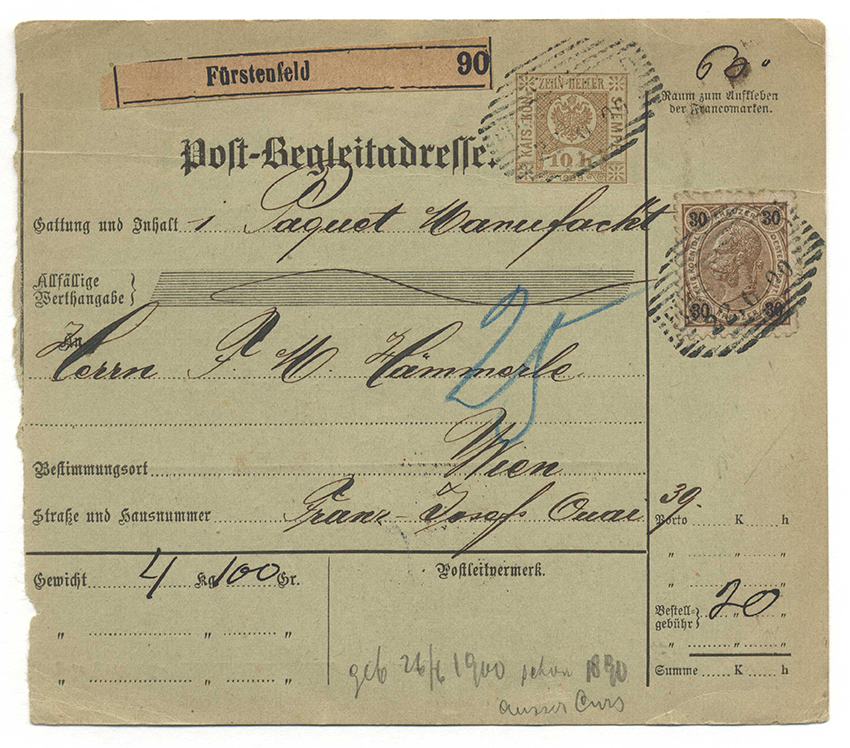 Fürstenfeld 90
60
Raum zum Aufkleben
der Francomarken.
KAIS. KÖN. ZEHN HELLER STEMPEL
10 h
Post-Begleitadresse.
Gattung und Inhalt 1 Paquet Manufackt
30 KREUZER 30
30 30
Allfällige
Werthangabe
An
Herrn F. M. Hämmerle
25
Bestimmungsort Wien
Straße und Hausnummer Franz-Josefs Quai 39.
Porto K h
" " "
" " "
Gewicht 4 Kg 100 Gr.
Postleitvermerk.
Bestell-
gebühr 20 "
" " "
" " "
Summe K h
geb 26/6 1900 schon 1890
ausser Curs